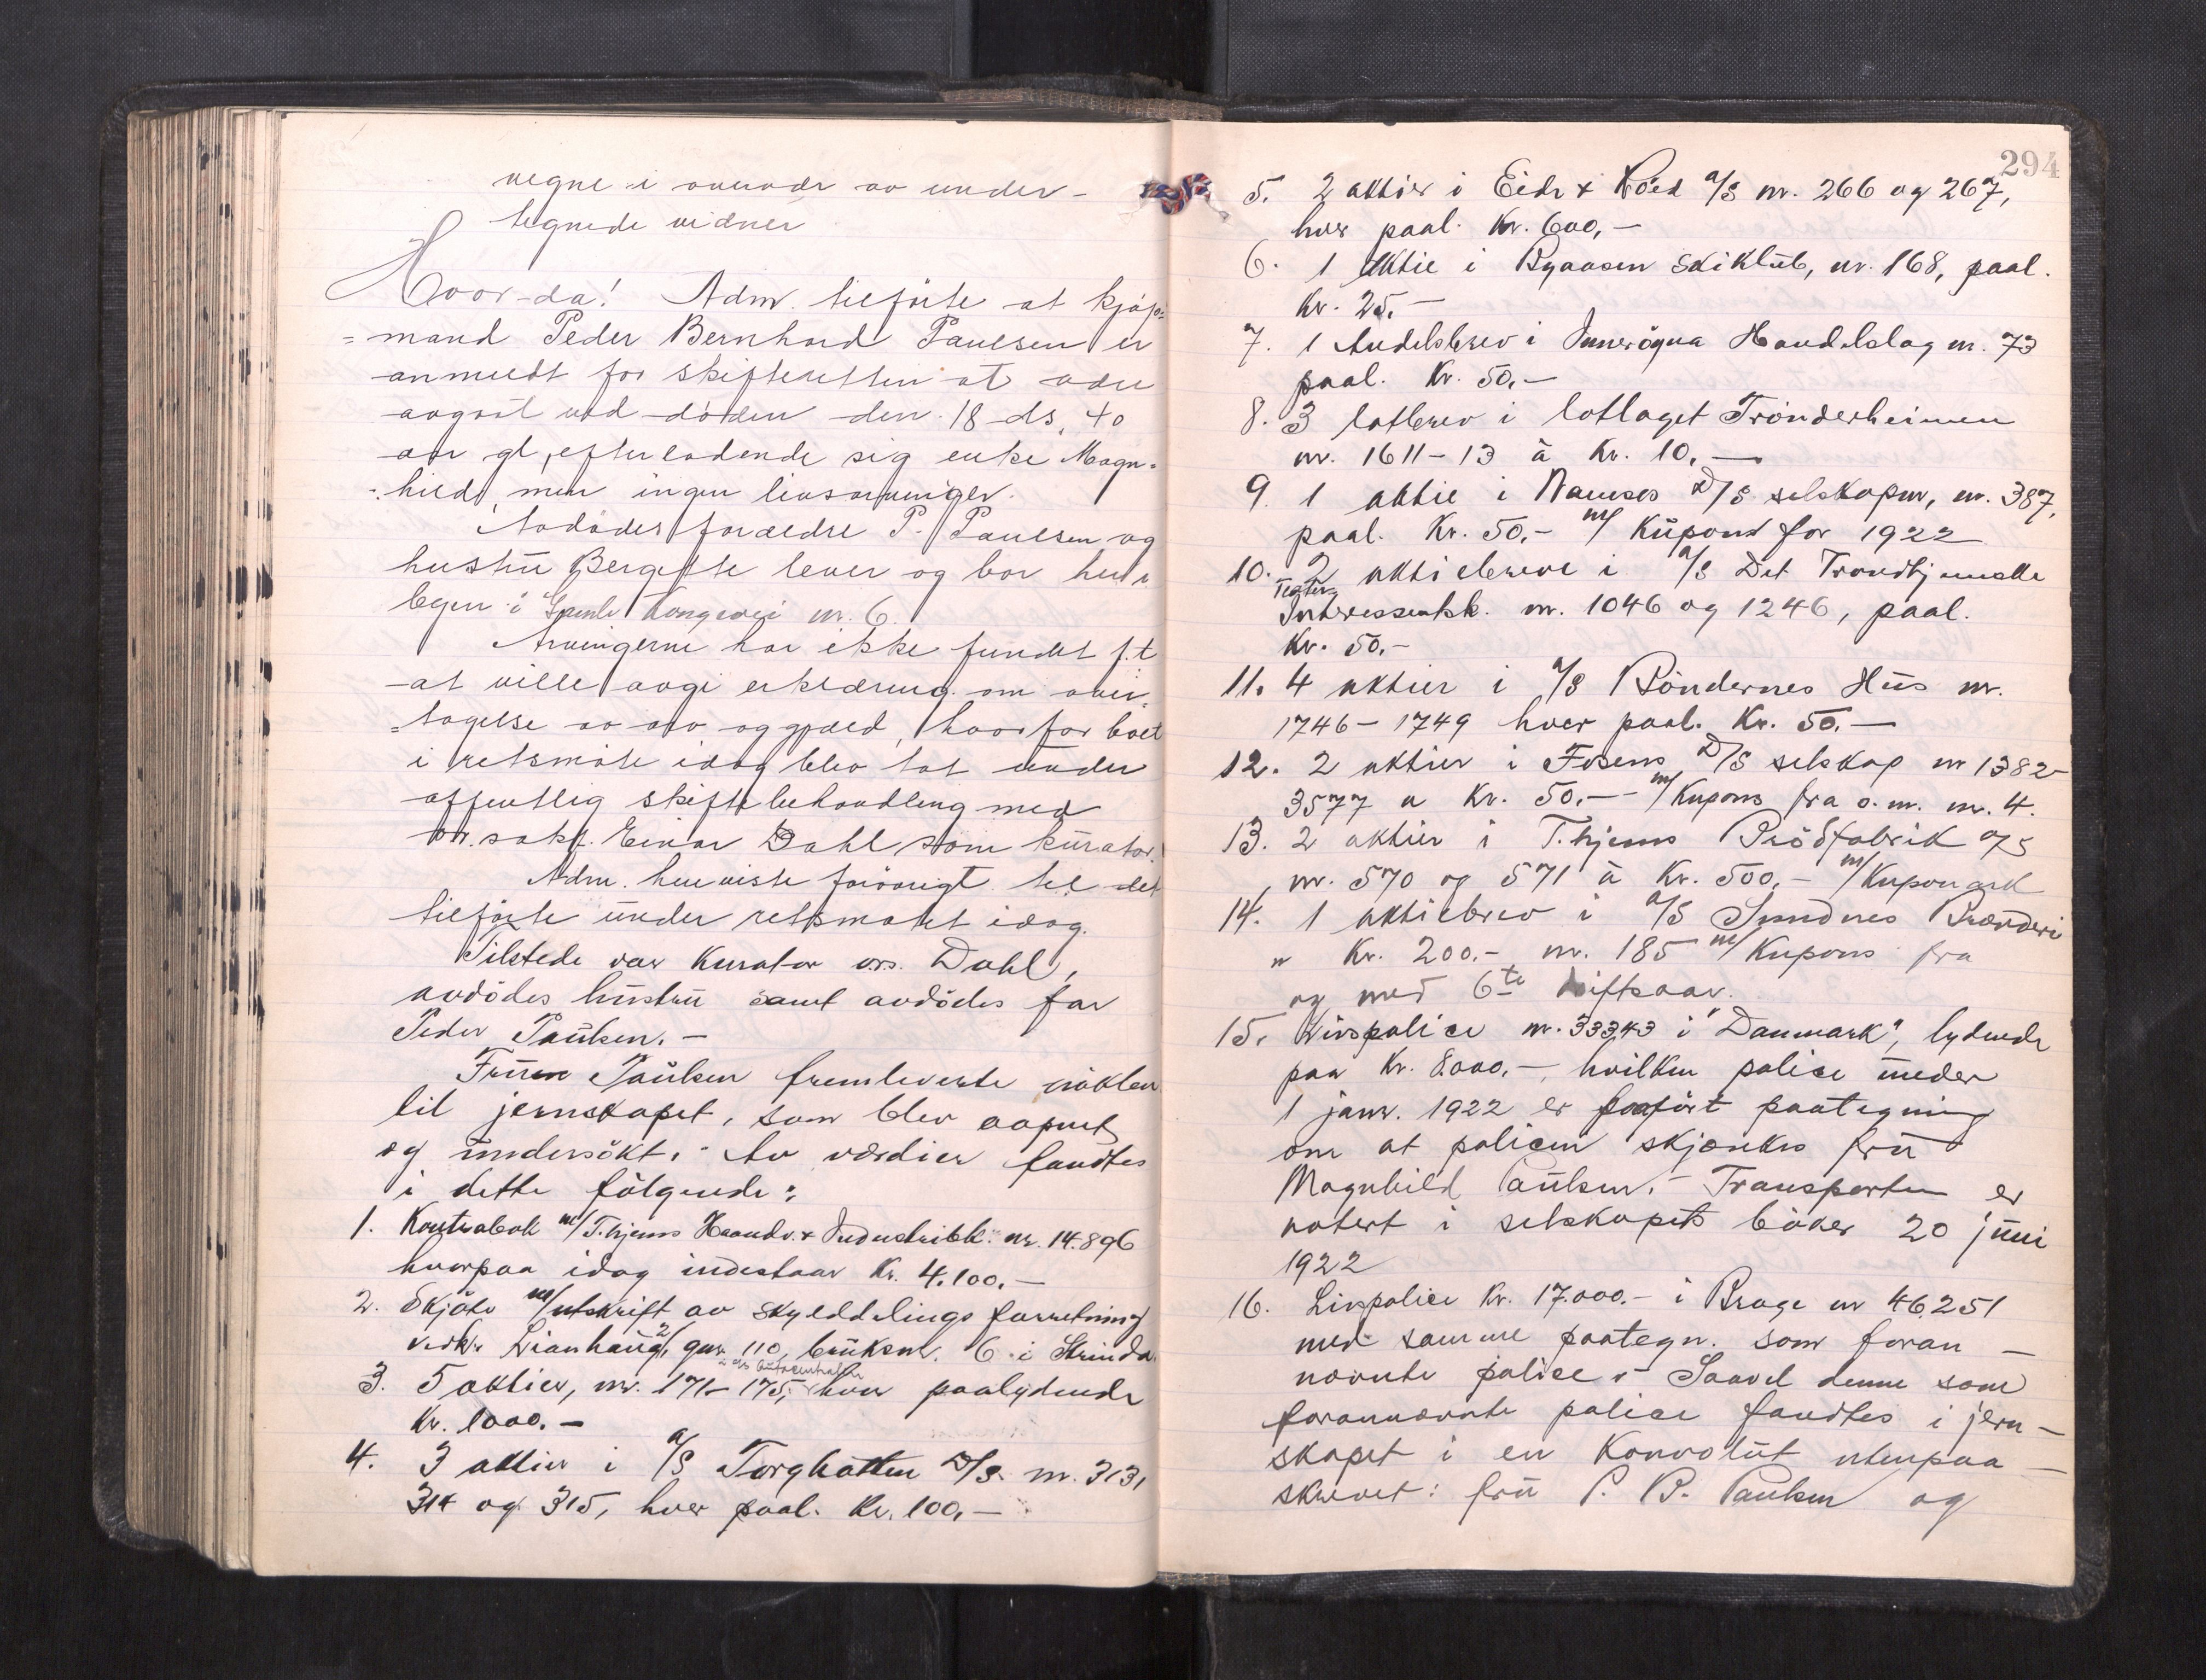 vegne i overvær av under-
tegnede vidner
Hvor-da! Adm. tilførte at kjøp=
=mand Peder Bernhard Paulsen er
anmeldt for skifteretten at være
avgaat ved døden den 18 ds, 40
aar gl, efterladende sig enke Magn=
=hild, men ingen livsarvinger.
Avdødes forældre P. Paulsen og
hustru Bergitte lever og bor her i
byen i Gamle Kongevei nr. 6.
Arvingerne har ikke fundet f.t
at ville avgi erklæring om over=
=tagelse av arv og gjæld, hvorfor boet
i retsmøte idag blev tat under
offentlig skiftebehandling med
or. sakf. Einar Dahl som kurator.
Adm. henviste forøvrigt til det
tilførte under retsmøtet idag.
Tilstede var Kurator ors. Dahl,
avdødes hustru samt avdødes far
Peder Paulsen. -
Fruen Paulsen fremleverte nøklen
til jernskapet, som blev aapnet
og undersøkt. Av værdier fandtes
i dette følgende:
1. Kontrabok m/ T.hjems Haandv. & Industribk. nr. 14.896
hvorpaa idag indestaar Kr. 4.100.-
2. Skjøte m/utskrift av skylddelings forretning
vedk. Lianhaug 2/, gnr. 110, bruksnr. 6 i Strinda.
i a/s Autocentralen
3. 5 aktier, nr. 171-175, hver paalydende
Kr. 1000.-
4. 3 aktier i A/S Torghatten D/S. nr. 313,
314 og 315, hver paal. Kr. 100,-
294
5. 2 aktier i Eide & Roed A/S nr. 266 og 267,
hver paal. Kr. 600,-
6. 1 aktie i Byaasen skiklub, nr. 168, paal.
Kr. 25.-
7. 1 Andelsbrev i Inderøyna Handelslag nr. 73
paal. Kr. 50.-
8. 3 lotbrev i lotlaget Trønderheimen
nr. 1611-13 à Kr. 10.-
9. 1 aktie i Namsos D/S selskapm, nr. 387,
paal. Kr. 50.- m/ Kupond for 1922
10. 2 aktiebreve i A/S Det Trondhjemske
Teaters
Interessentsk. nr. 1046 og 1246, paal.
Kr. 50.-
11. 4 aktier i A/S Bøndernes Hus nr.
1746-1749 hver paal. Kr. 50.-
12. 2 aktier i Fosens D/S selskap nr 1382-
3577 a Kr. 50.- m/Kupons fra o. m. nr. 4.
13. 2 aktier i T.hjems Brødfabrik A/S
nr. 570 og 571 à Kr. 500.- m/Kuponark
14. 1 aktiebrev i A/S Sundnes Brænderi
a Kr. 200.- nr. 185 m/Kupons fra
og med 6te driftsaar.
15. Livspolice nr. 33343 i "Danmark", lydende
paa Kr. 8000.-, hvilken police under
1 janr. 1922 er paaført paategning
om at policen skjænkes fru
Magnhild Paulsen. - Transporten er
notert i selskapets bøker 20 juni
1922
16. Livspolice Kr. 17.000.- i Brage nr 46251
med samme paategn. som foran -
nævnte police. Saavel denne som
forannævnte police fandtes i jern -
skapet i en Konvolut utenpaa -
skrevet: fru P. B. Paulsen og